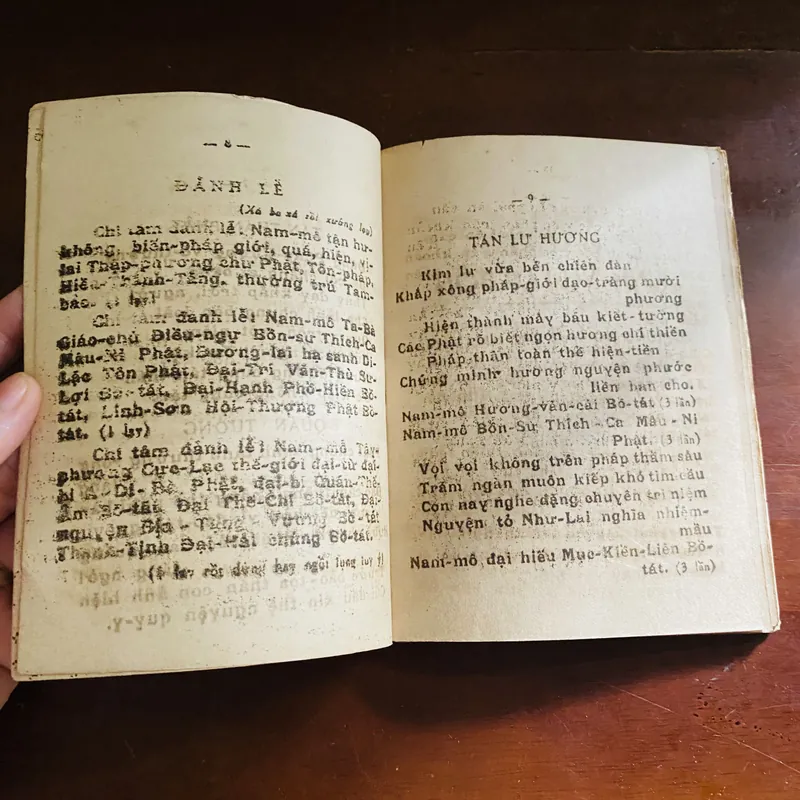 — 8 —
ĐẢNH LỄ
(Xá ba xá rồi xướng lạy)
Chí tâm đảnh lễ: Nam-mô tận hư-
không, biến-pháp giới, quá, hiện, vị-
lai Thập-phương chư Phật, Tôn-pháp,
Hiền-Thánh-Tăng, thường trú Tam-
bảo. (1 lạy)
Chí tâm đảnh lễ: Nam-mô Ta-Bà
Giáo-chủ Điều-ngự Bổn-sư Thích-Ca
Mâu-Ni Phật, Đương-lai hạ sanh Di-
Lặc Tôn Phật, Đại-Trí Văn-Thù Sư-
Lợi Bồ-tát, Đại-Hạnh Phổ-Hiền Bồ-
tát, Linh-Sơn Hội-Thượng Phật Bồ-
tát. (1 lạy)
Chí tâm đảnh lễ: Nam-mô Tây-
phương Cực-Lạc thế-giới đại-từ đại-
bi A-Di-Đà Phật, đại-bi Quán-Thế-
Âm Bồ-tát, Đại Thế-Chí Bồ-tát, Đại-
nguyện Địa-Tạng-Vương Bồ-tát
Thanh-Tịnh Đại-Hải chúng Bồ-tát.
(1 lạy rồi đứng hay ngồi tụng tùy ý)
— 9 —
TÁN LƯ HƯƠNG
Kim lư vừa bén chiên đàn
Khắp xông pháp-giới đạo-tràng mười
phương
Hiện thành mây báu kiết-tường
Các Phật rõ biết ngọn hương chí thiền
Pháp-thân toàn thể hiện-tiền
Chứng minh hương nguyện phước
liền ban cho.
Nam-mô Hương-vân-cái Bồ-tát (3 lần)
Nam-mô Bổn-Sư Thích-Ca Mâu-Ni
Phật. (3 lần)
Vọi vọi không trên pháp thẳm sâu
Trăm ngàn muôn kiếp khó tìm cầu
Con nay nghe đặng chuyên trì niệm
Nguyện tỏ Như-Lai nghĩa nhiệm-
mầu
Nam-mô đại hiếu Mục-Kiền-Liên Bồ-
tát. (3 lần)